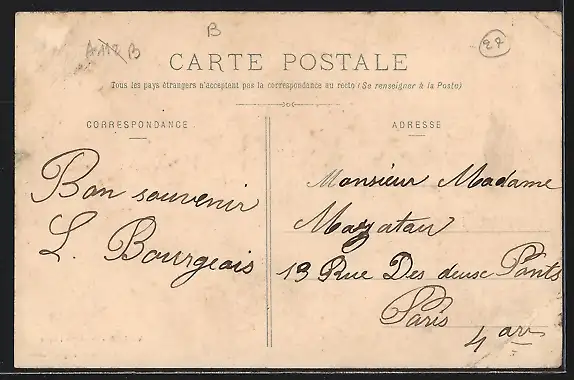 B
A112 B
27
CARTE POSTALE
Tous les pays étrangers n'acceptent pas la correspondance au recto (Se renseigner à la Poste)
CORRESPONDANCE
ADRESSE
Bon souvenir
L. Bourgeois
Monsieur Madame
13 Rue Des deux Ponts
Paris
4 arr